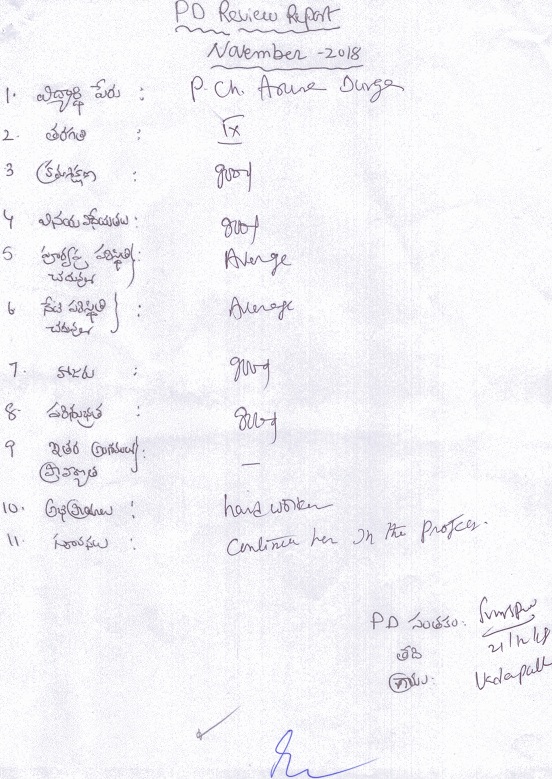 PD Review Report
November - 2018
1. విద్యార్థి పేరు : P. Ch. Aruna Durga
2. తరగతి : IX
3 క్రమశిక్షణ : good
4 వినయ విధేయతలు : good
5 పూర్వపు పరిస్థితి : Average
చదువులో
6 నేటి పరిస్థితి : Average
చదువులో
7. హాజరు : good
8. పరిశుభ్రత : good
9 ఇతర : —
ప్రావీణ్యత
10. అభిప్రాయాలు : hard worker
11. సూచనలు : Continue her in the Project.
PD సంతకం:
తేది 21/12/18
గ్రామం: